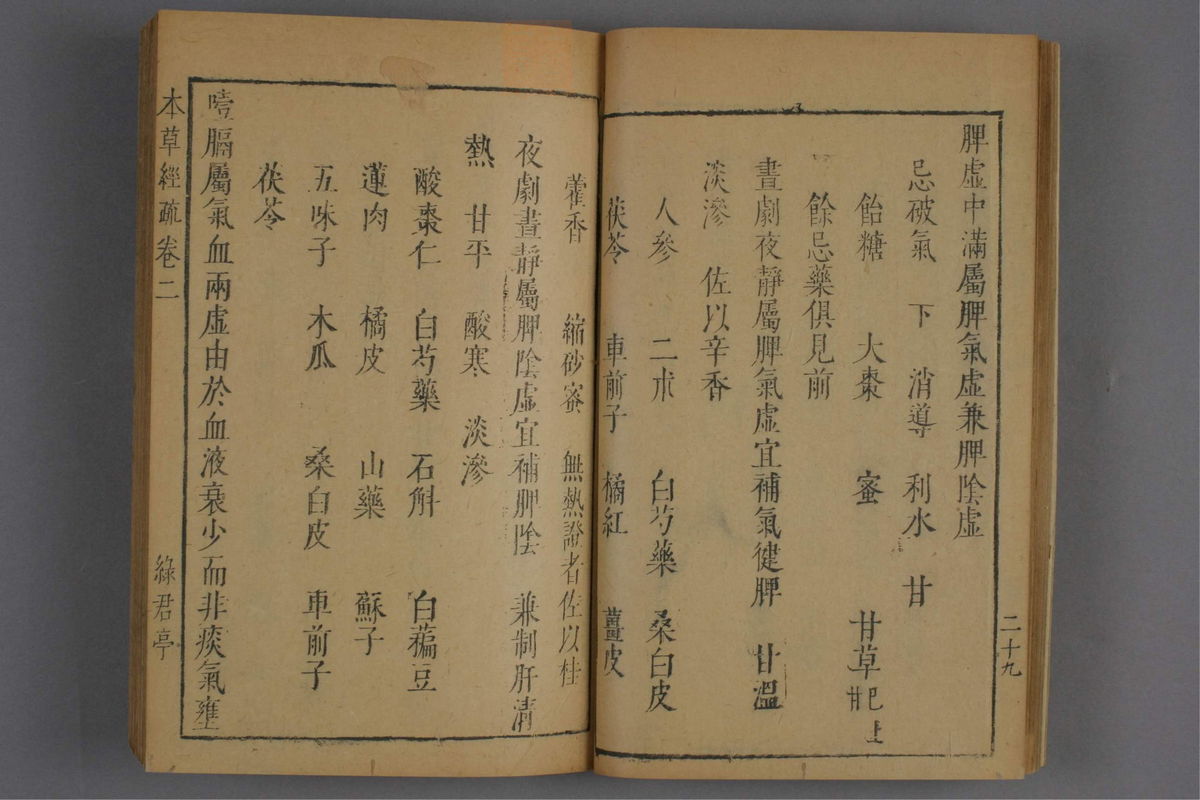 脾虛中滿屬脾氣虛兼脾陰虛
忌破氣　下　消導　利水　甘
飴糖　大棗　蜜　甘草　已上甘
餘忌藥俱見前
晝劇夜靜屬脾氣虛宜補氣健脾　甘溫
淡滲　佐以辛香
人參　二朮　白芍藥　桑白皮
茯苓　車前子　橘紅　薑皮
二十九
藿香　縮砂蜜　無熱證者佐以桂
夜劇晝靜屬脾陰虛宜補脾陰　兼制肝清
熱　甘平　酸寒　淡滲
酸棗仁　白芍藥　石斛　白藊豆
蓮肉　橘皮　山藥　蘇子
五味子　木瓜　桑白皮　車前子
茯苓
噎膈屬氣血兩虛由於血液衰少而非痰氣壅
本草經疏卷二　綠君亭